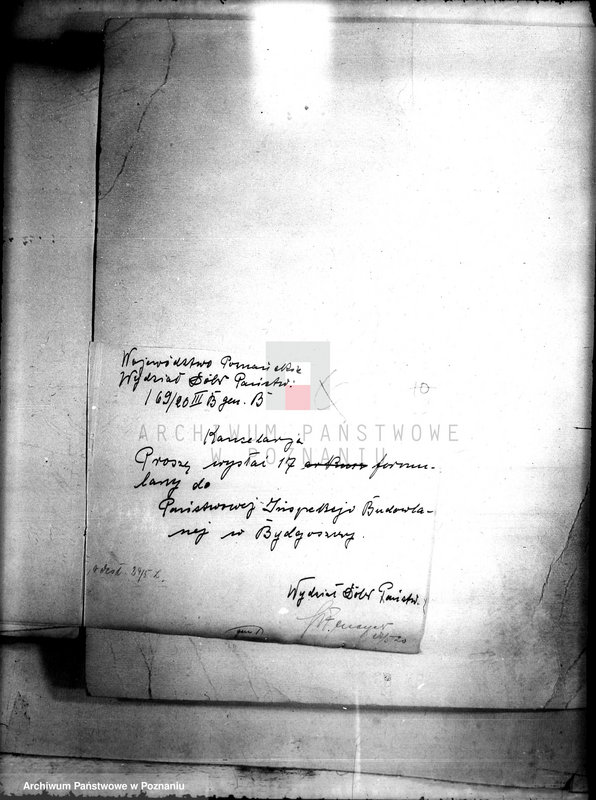 Województwo Poznańskie
Wydział Dóbr Państw.
169/20 III B gen. B
10
ARCHIWUM PAŃSTWOWE
W POZNANIU
Kancelarja
Proszę wysłać 17 formu-
larzy do
Państwowej Inspekcji Budowla-
nej w Bydgoszczy.
odesł. 24/5
Wydział Dóbr Państw.
Archiwum Państwowe w Poznaniu